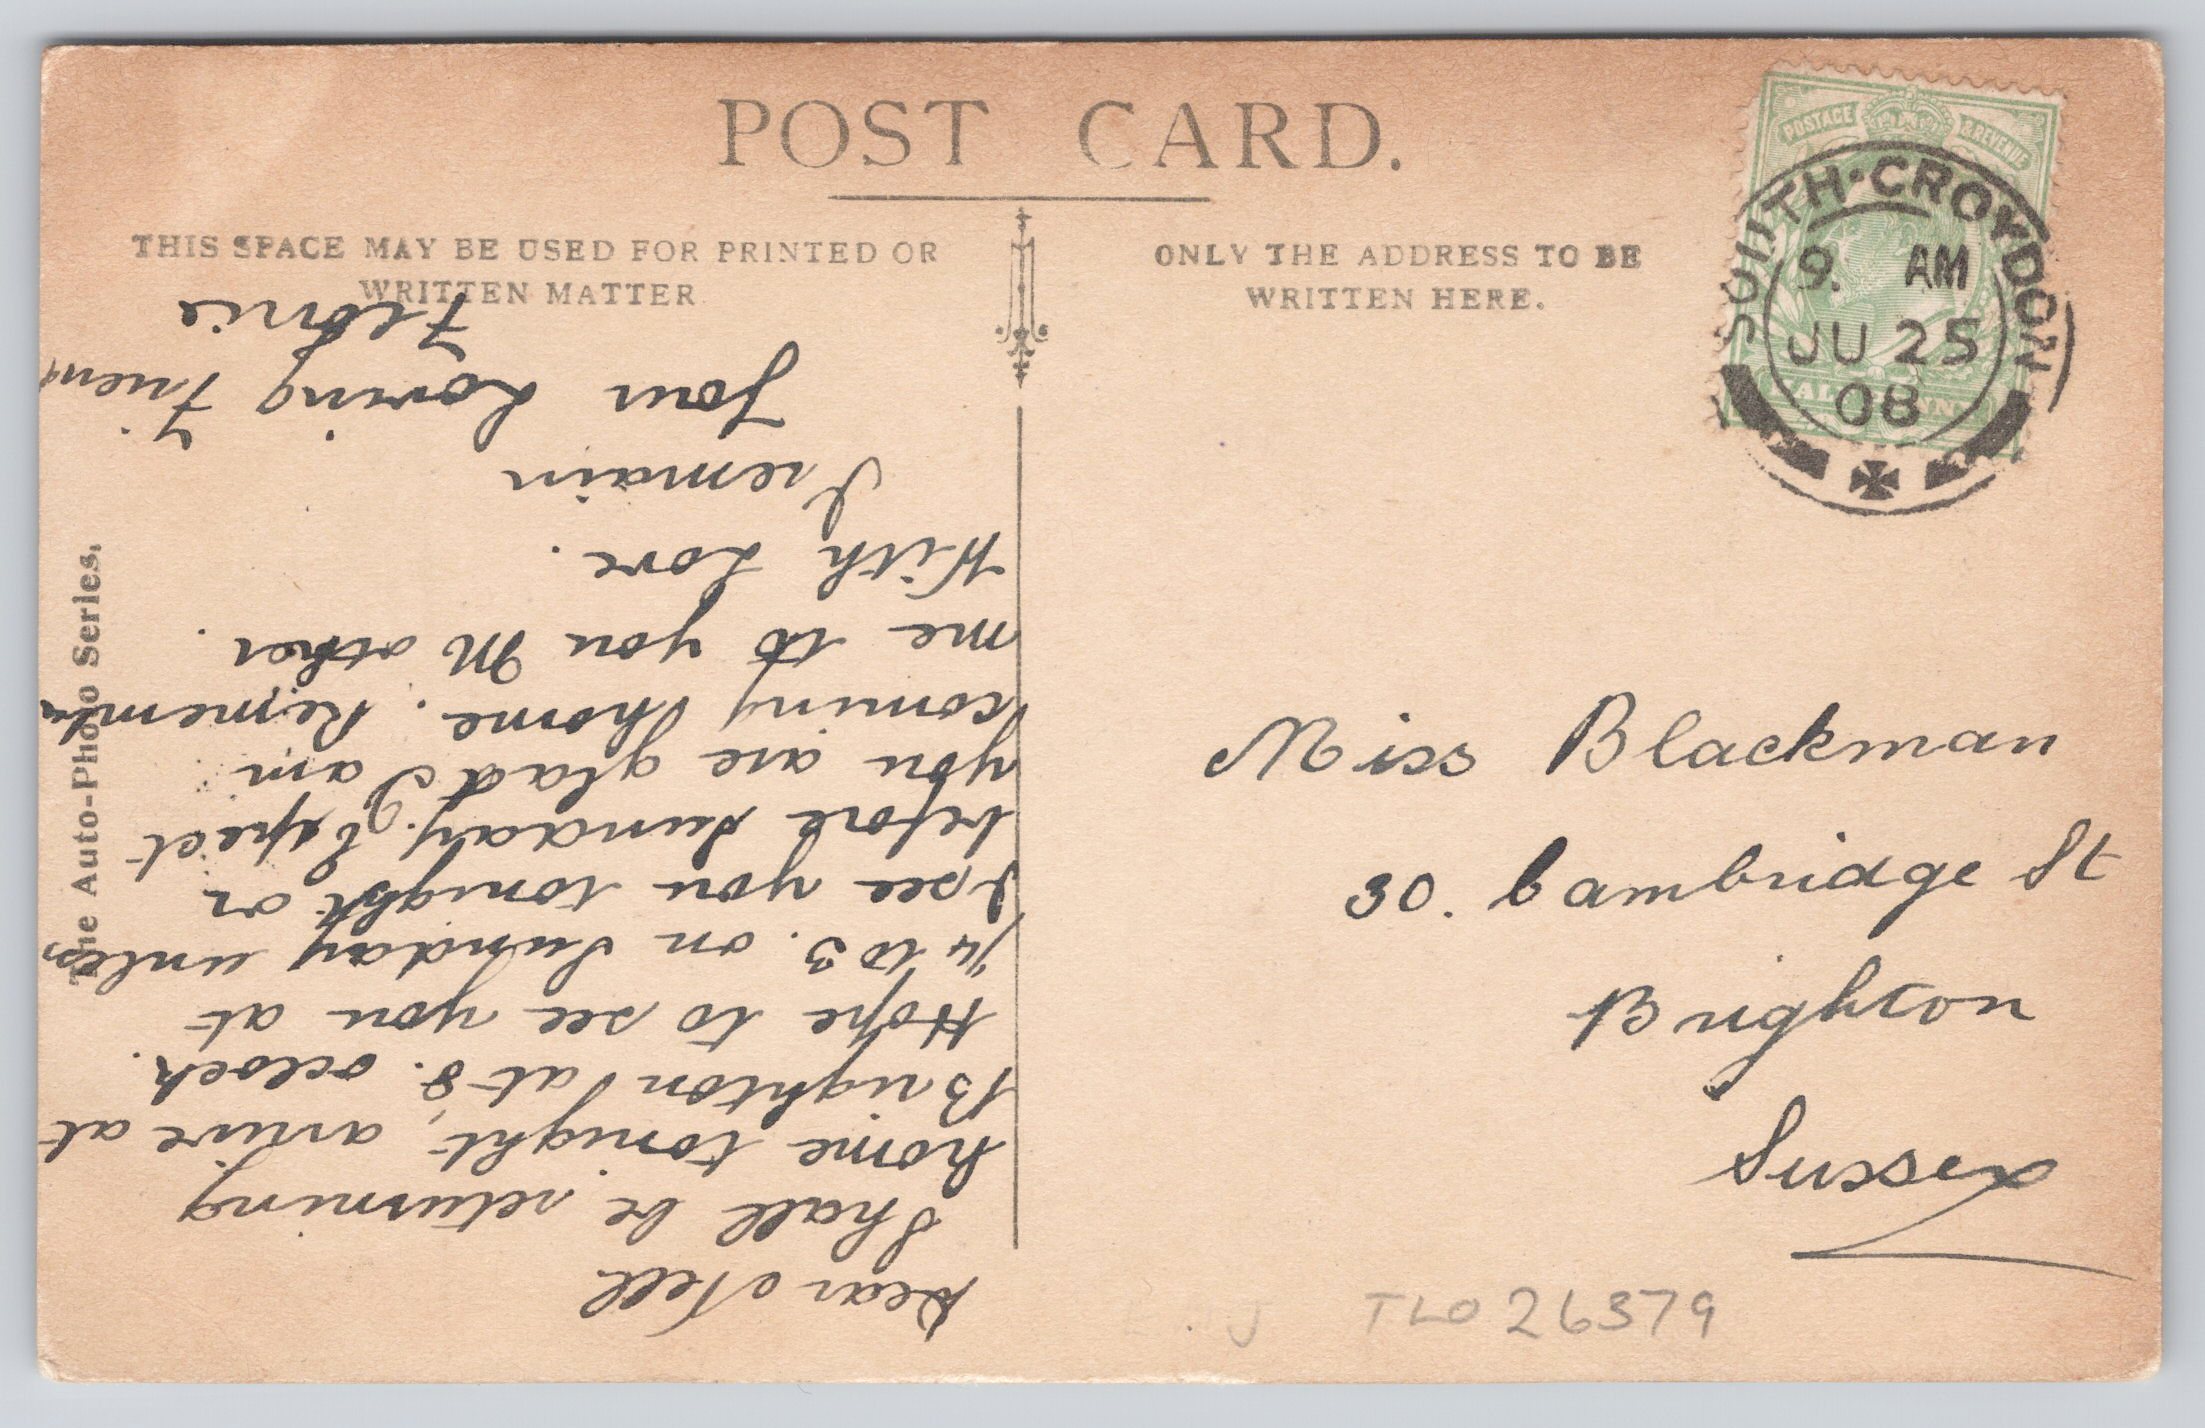 POST CARD.
THIS SPACE MAY BE USED FOR PRINTED OR
WRITTEN MATTER
ONLY THE ADDRESS TO BE
WRITTEN HERE.
POSTAGE & REVENUE
SOUTH·CROYDON
9. AM
JU 25
08
The Auto-Photo Series.
Dear Nell
Shall be returning
home tonight, arrive at
Brighton at 8. oclock.
Hope to see you at
¼ to 3. on Sunday unless
I see you tonight or
before Sunday. I expect
you are glad I am
coming home. Remember
me to you Mother.
With Love.
I remain
Your Loving Friend
Florrie
Miss Blackman
30. Cambridge St
Brighton
Sussex
TLO 26379